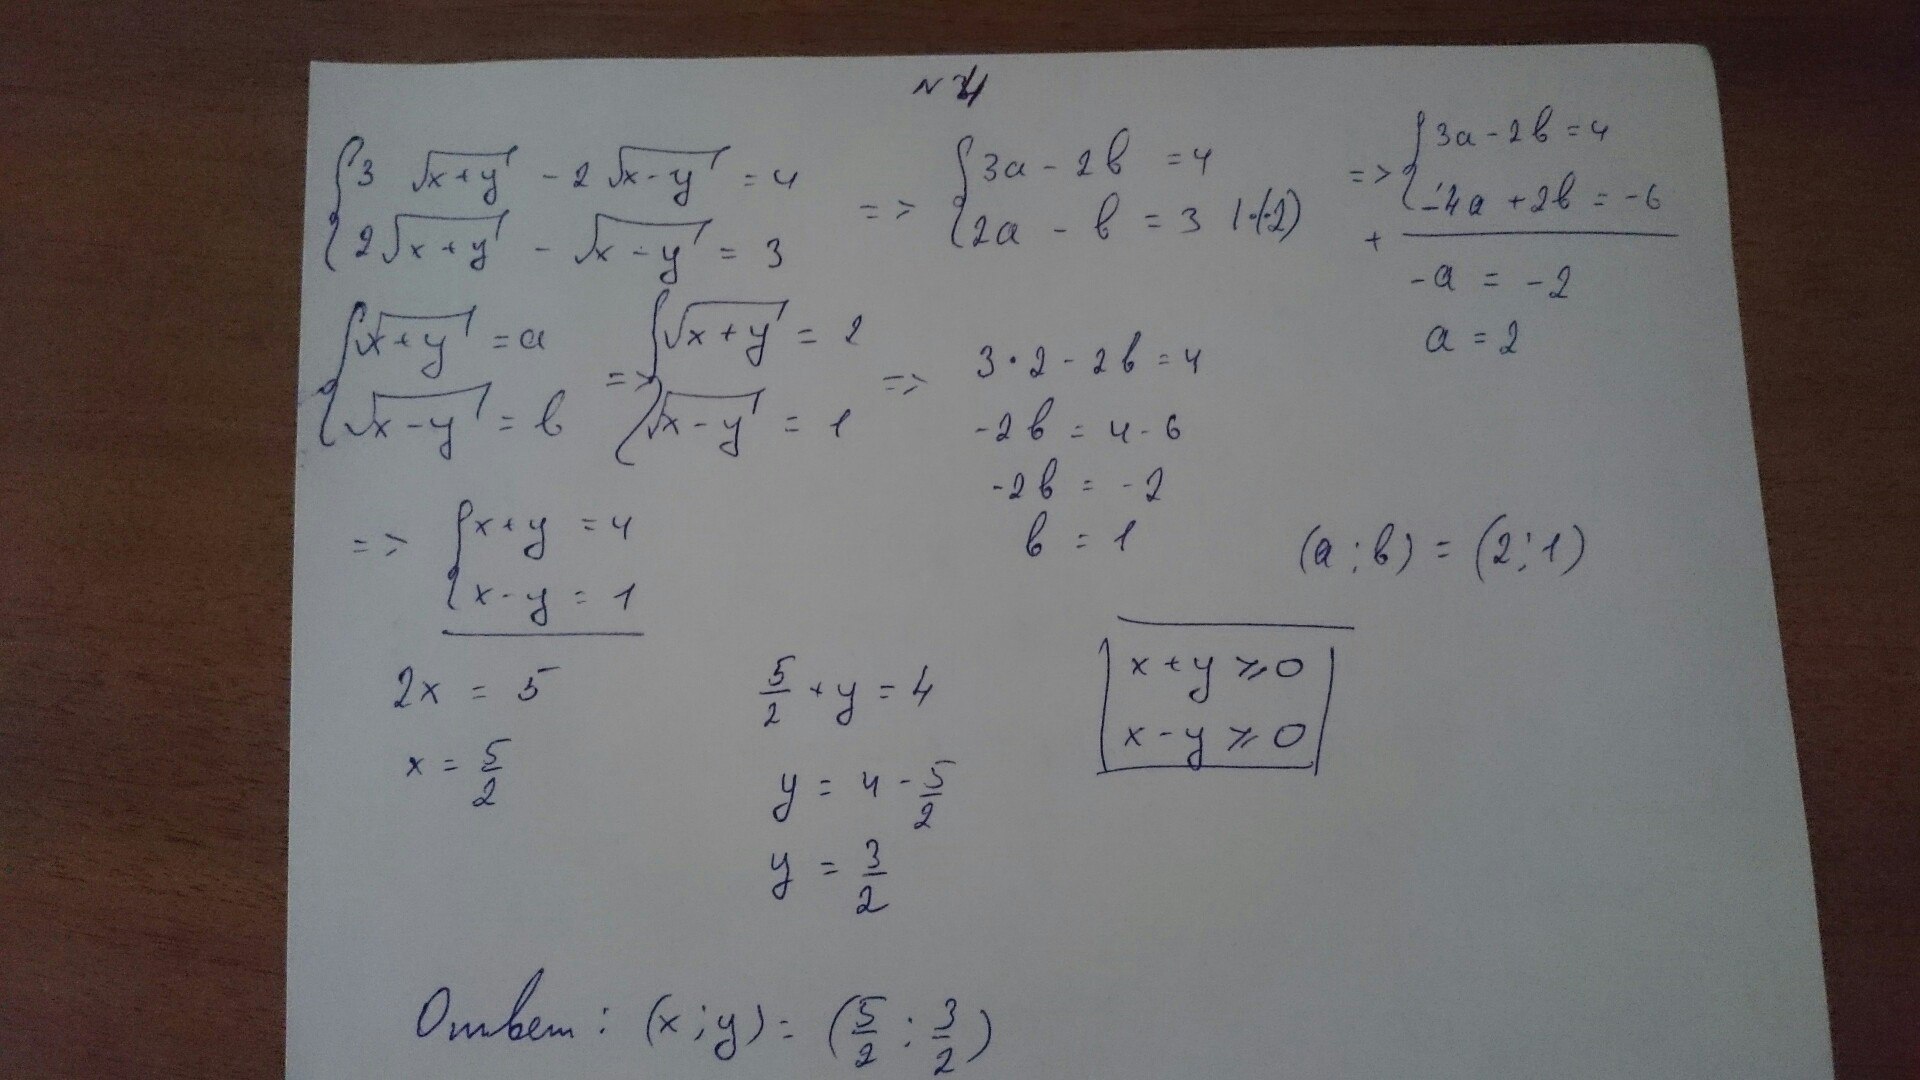 {3 √(x+y) - 2√(x-y) = 4
{2√(x+y) - √(x-y) = 3
=> {3a - 2b = 4
{2a - b = 3 |·(-2)
=> {3a - 2b = 4
{-4a + 2b = -6
+
-a = -2
a = 2
{√(x+y) = a
{√(x-y) = b
=> {√(x+y) = 2
{√(x-y) = 1
=> 3·2 - 2b = 4
-2b = 4 - 6
-2b = -2
b = 1
(a ; b) = (2 ; 1)
=> {x+y = 4
{x-y = 1
2x = 5
x = 5/2
5/2 + y = 4
y = 4 - 5/2
y = 3/2
x+y ⩾ 0
x-y ⩾ 0
Ответ: (x ; y) = (5/2 ; 3/2)